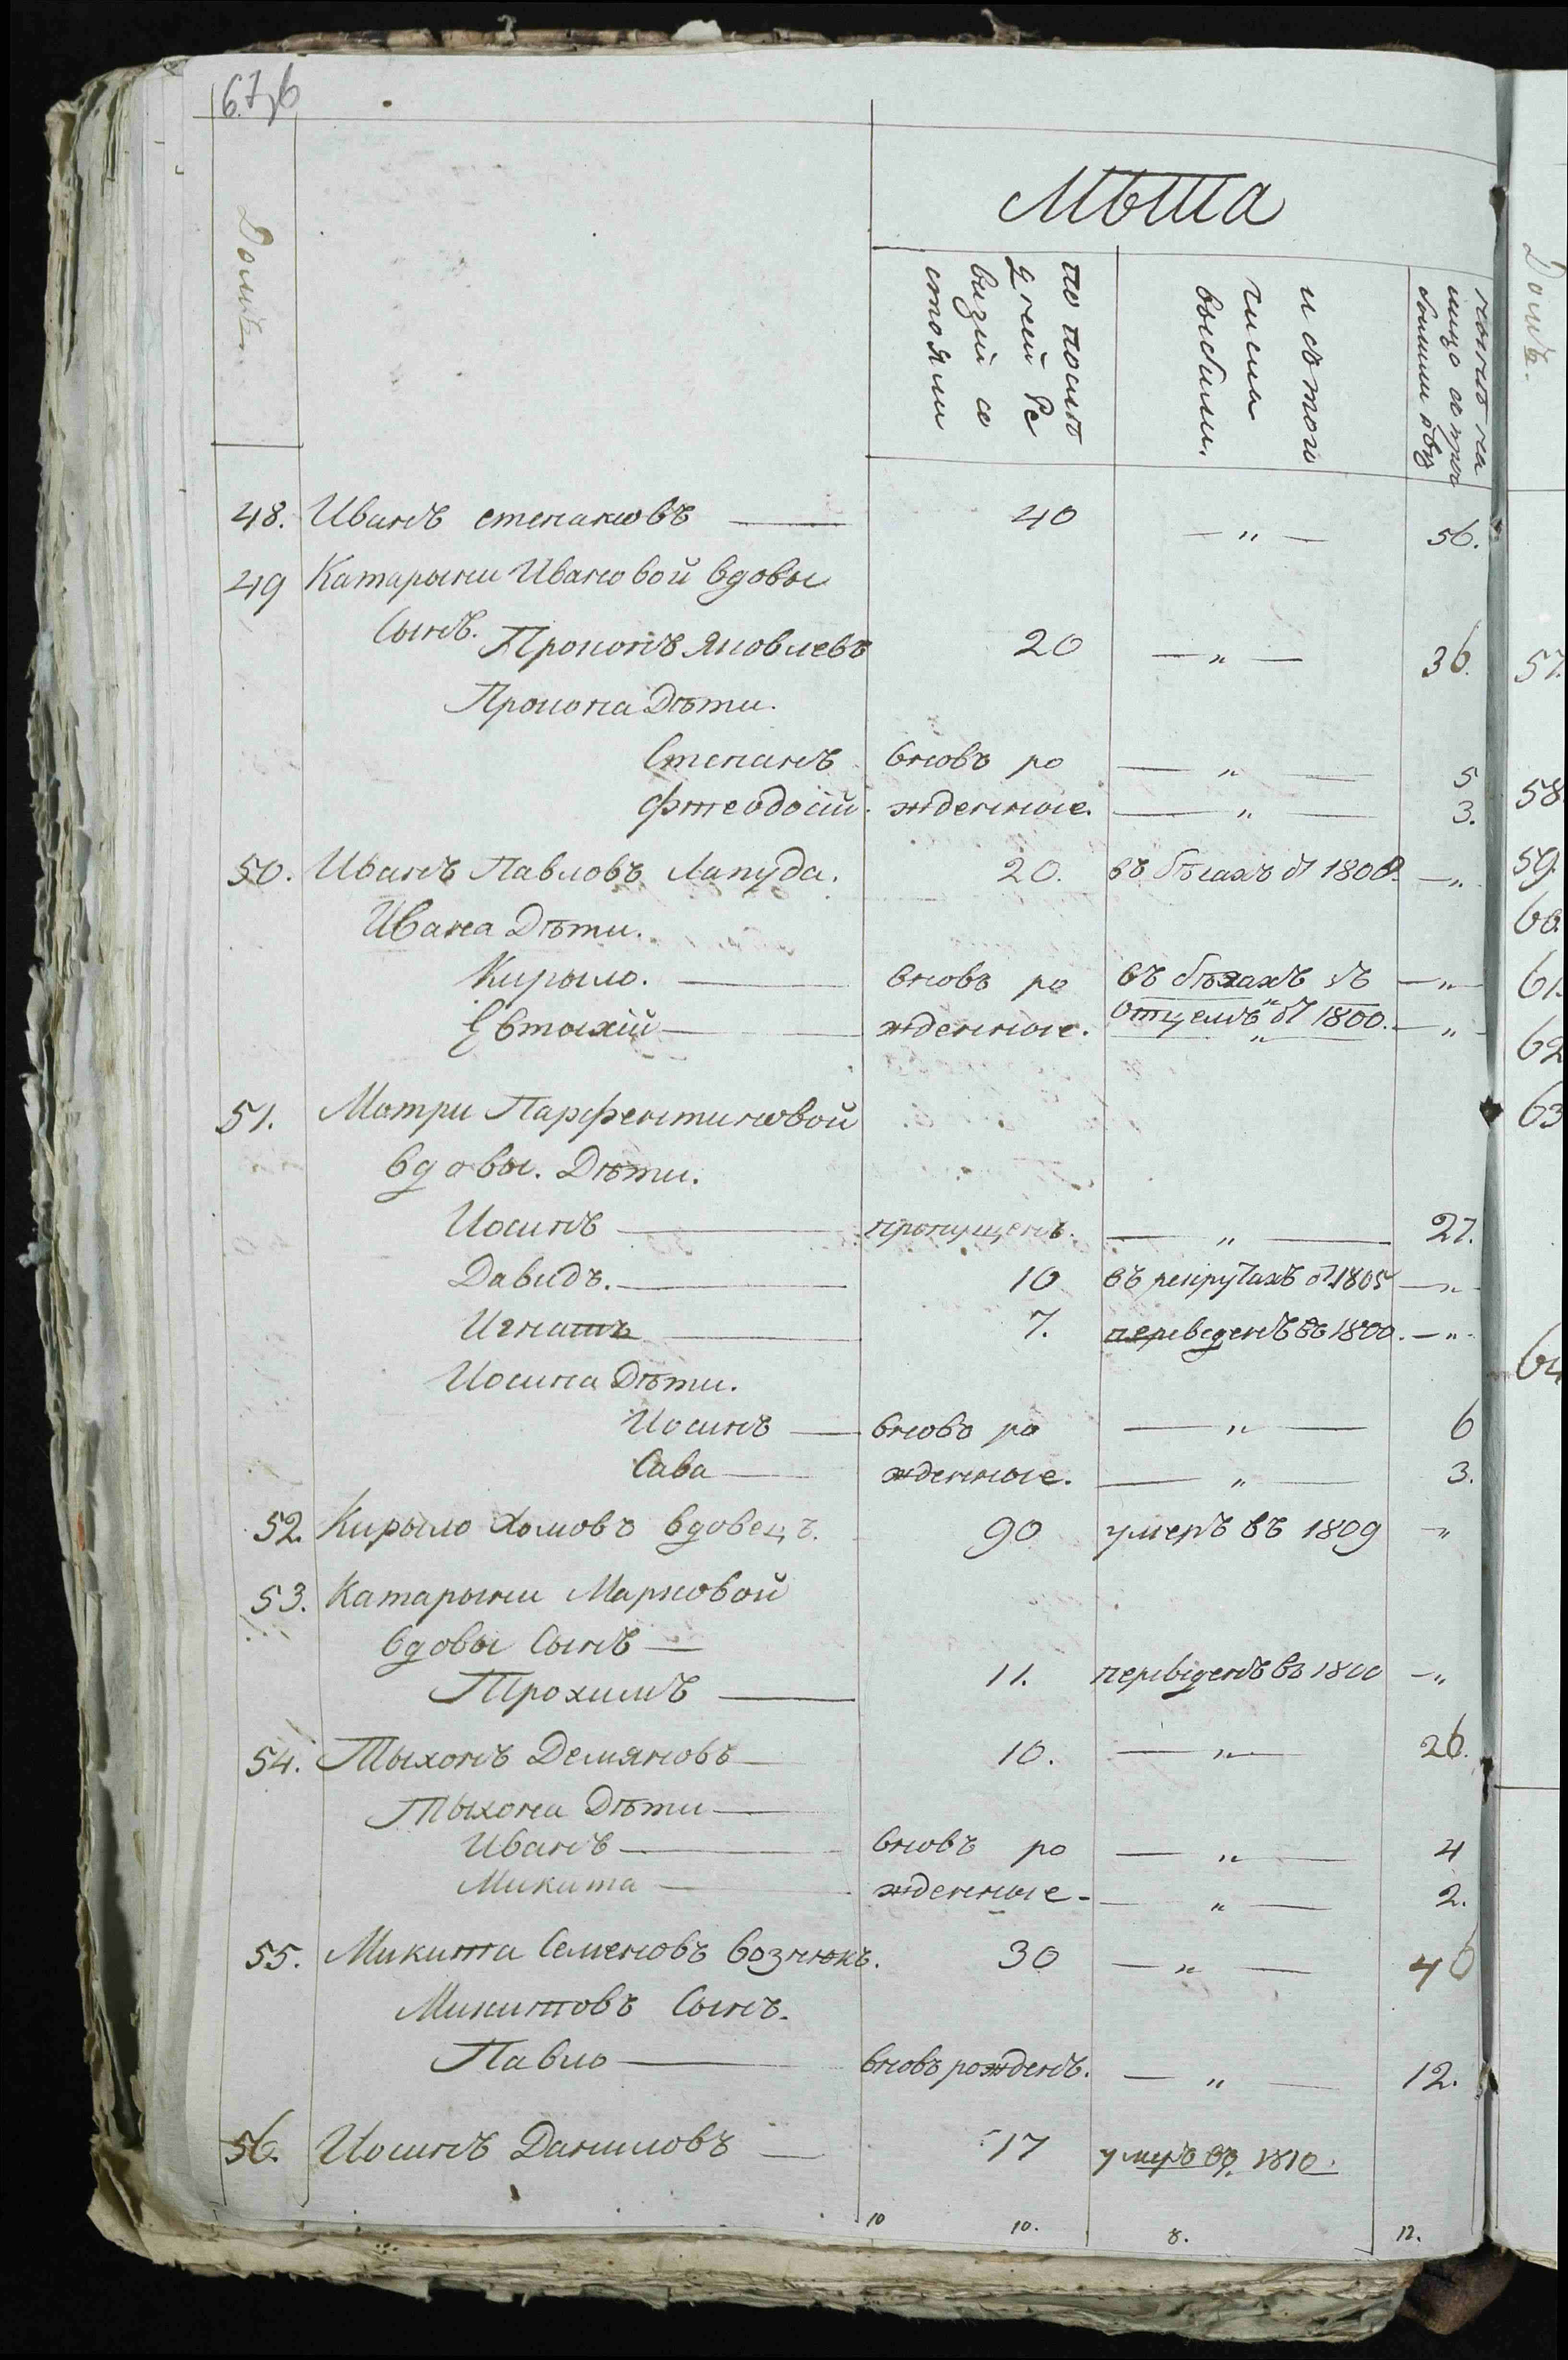 Лѣта
Домы
по послѣ
дней Ре
визiи со
стояли
изъ того
числа
выбыли.
Домъ.
48. Иванъ степановъ — 40 — „ — 56.
49 Катарыни Ивановой вдовы
Сынъ. Прокопъ Яковлевъ 20 — „ — 36.
Прокопа Дѣти.
Степанъ вновь ро — „ — 5
Фтеодосiй. жденные. — „ — 3.
50. Иванъ Павловъ Лапуда. 20. въ бѣгахъ съ 1800. — „
Ивана Дѣти.
Кирыло. — вновь ро въ бѣгахъ съ — „ —
Евтыхiй — жденные. отцемъ съ 1800. — „
51. Мотри Парфентиновой
вдовы. Дѣти.
Иосипъ — пропущенъ. — „ — 27.
Давидъ. — 10 въ рекрутахъ съ 1805 — „
Игнатъ — 7. переведенъ въ 1800. — „
Иосипа Дѣти.
Иосипъ — вновь ро — „ — 6
Сава — жденные. — „ — 3.
52. Кирыло Хомовъ вдовецъ. 90 умеръ въ 1809 — „
53. Катарыни Марковой
вдовы Сынъ —
Трохимъ — 11. переведенъ въ 1800 — „
54. Тыхонъ Демяновъ — 10. — „ — 26.
Тыхона Дѣти —
Иванъ — вновь ро — „ — 4
Микита — жденные — „ — 2.
55. Микита Семеновъ вознюкъ. 30 — „ — 46
Микитовъ Сынъ.
Павло — вновь рожденъ. — „ — 12.
56. Иосипъ Даниловъ — 17 умеръ въ 1810.
10 10. 8. 12.
57.
58
59.
60.
61.
62
63
64